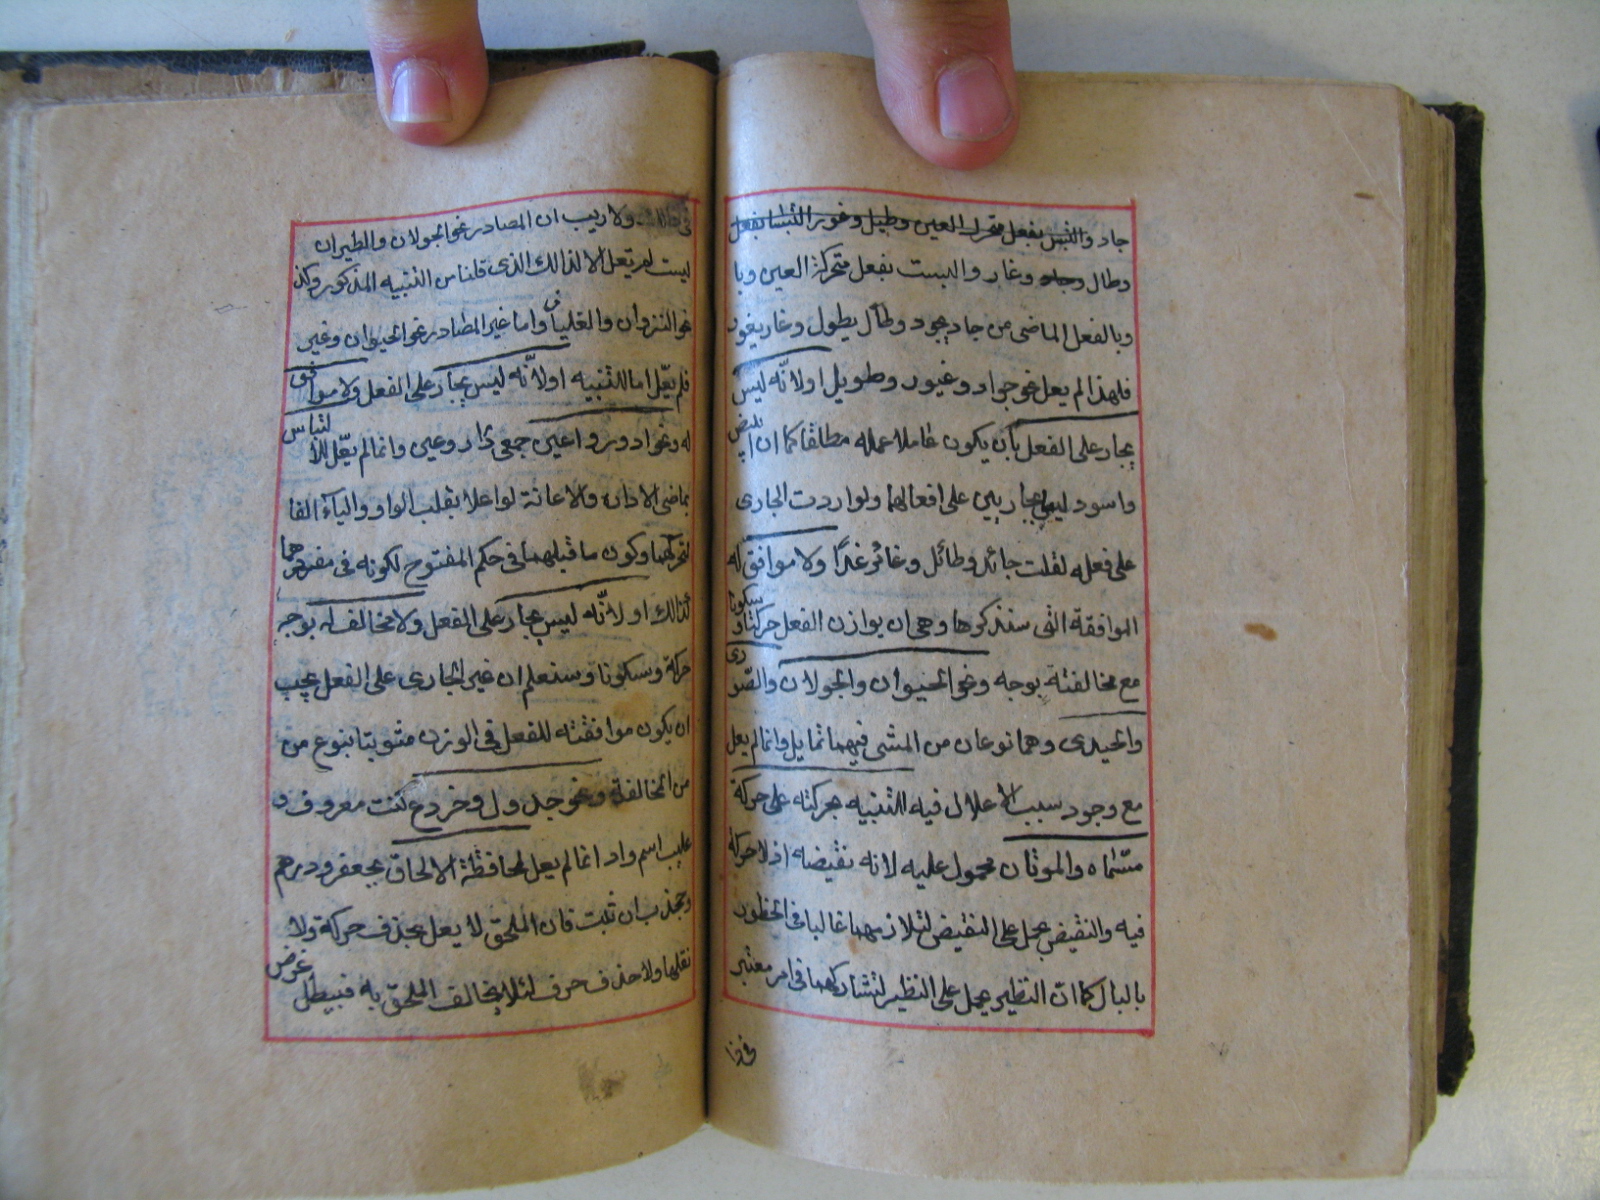 جاد والتبس بفعل متحرك العين وطيل وغور التبسا بفعل
وطال وجاد وغار والبست بفعل متحركة العين وبا
وبالفعل الماضى من جاد يجود وطال يطول وغار يغور
فلهذا لم يعل نحو جواد وغيور وطويل او لانّه ليس
بجار على الفعل بأن يكون عاملا عمله مطلقا كما ان ابيض
واسود ليسا بجاريين على افعالهما ولو اردت الجارى
على فعله لقلت جائد وطائل وغائر غدًا ولا موافق له
الموافقة التى سنذكرها وهى ان يوازن الفعل حركتا وسكونا
مع مخالفتة بوجه ونحو الحنيوان والجولان والصّورى
والحيدى وهما نوعان من المشى فيهما تمايل وانما لم يعل
مع وجود سبب الاعلال فيه للتنبيه بحركته على حركة
مسّماه والموتان محمول عليه لانه نقيضه اذ لا حركة
فيه والنقيض يحمل على النقيض لتلازمهما غالبا فى الخطور
بالبال كما ان النظير يحمل على النظير لتشاركهما فى امر معتبر
ولا ريب ان المصادر نحو الجولان والطيران
ليست لم تعل الا لذالك الذى قلنا من التنبيه المذكور وكذ
نحو النزوان والغليان واما غير المصادر نحو الحيوان وغيى
فلم يعّل اما للتنبيه او لانّه ليس بجار على الفعل ولا موافق
له ونحو ادور واعين جمعى دار وعين وانما لم يعّل للالتباس
بماضى الادان والاعانة لو اعلا بقلب الواو والياء الفا
لتحركهما وكون ما قبلهما فى حكم المفتوح لكونه فى مفردهما
كذالك او لانّه ليس بجار على الفعل ولا مخالف له بوجه
حركة وسكونا وستعلم ان غير الجارى على الفعل يجب
ان يكون موافقته للفعل فى الوزن مثوبتا بنوع من
من المخالفة ونحو جدول وخروع كنت معروف و
عليب اسم واد انما لم يعل لمحافظة الالحاق بجعفر ودرهم
وجخدب ان ثبت فان الملحق لا يعل بحذف حركة ولا
نقلها ولا حذف حرف لئلا يخالف الملحق به فيبطل غرض